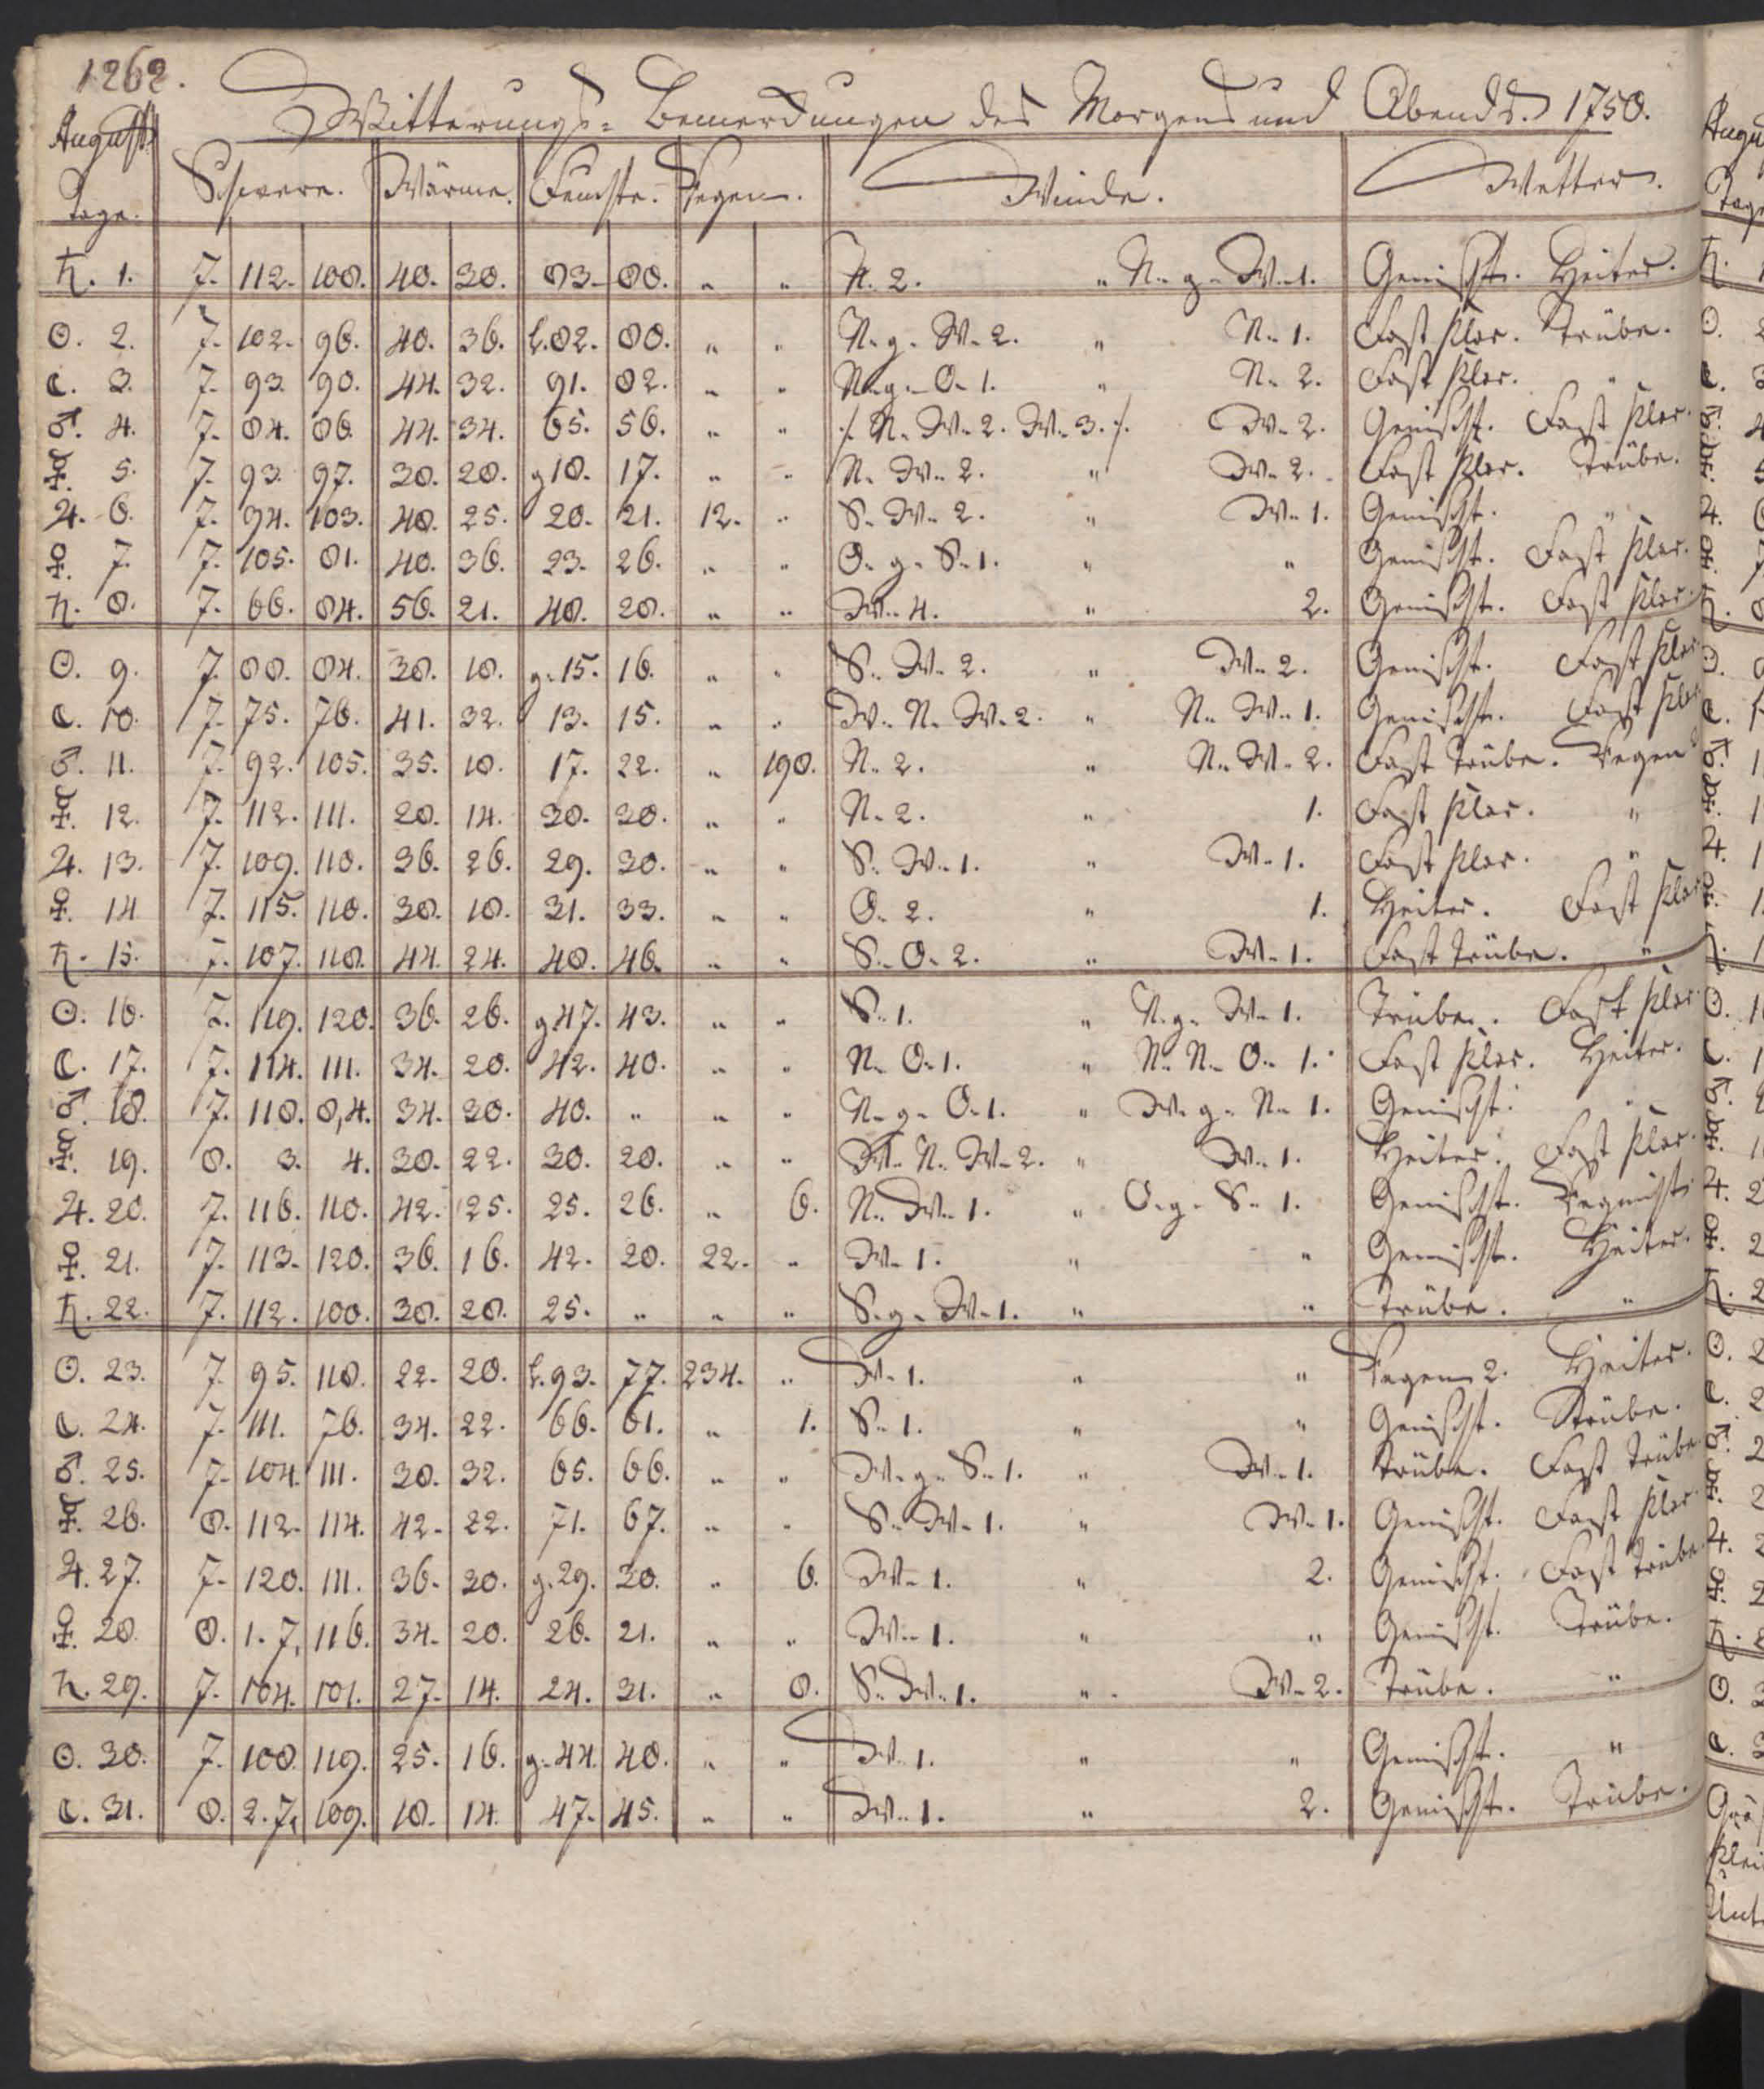 1262.
Witterungs= Bemerckungen des Morgens und Abends. 1750.
August
Tage. Schwere. Wärme. Feuchte. Regen. Winde. Wetter.
♄. 1. 7. 112. 108. 40. 30. 83. 88. " " N. 2. " N. g. W. 1. Gemischt. Heiter.
☉. 2. 7. 102. 96. 40. 36. l. 82. 88. " " N. g. W. 2. " N. 1. Fast klar. Trübe.
☾. 3. 7. 93. 90. 44. 32. 91. 82. " " N. g. O. 1. " N. 2. Fast klar. "
♂. 4. 7. 84. 86. 44. 34. 65. 56. " " ./. N. W. 2. W. 3. ./. W. 2. Gemischt. Fast klar.
☿. 5. 7. 93. 97. 30. 20. g 18. 17. " " N. W. 2. " W. 2. Fast klar. Trübe.
♃. 6. 7. 94. 103. 40. 25. 20. 21. 12. " S. W. 2. " W. 1. Gemischt. "
♀. 7. 7. 105. 81. 40. 36. 23. 26. " " O. g. S. 1. " " Gemischt. Fast klar.
♄. 8. 7. 66. 84. 56. 21. 48. 28. " " W. 4. " 2. Gemischt. Fast klar.
☉. 9. 7. 88. 84. 38. 18. g. 15. 16. " " S. W. 2. " W. 2. Gemischt. Fast klar
☾. 10. 7. 75. 76. 41. 32. 13. 15. " " W. N. W. 2. " N. W. 1. Gemischt. Fast klar
♂. 11. 7. 92. 105. 35. 18. 17. 22. " 198. N. 2. " N. W. 2. Fast Trübe. Regen
☿. 12. 7. 112. 111. 28. 14. 30. 30. " " N. 2. " 1. Fast klar. "
♃. 13. 7. 109. 110. 36. 26. 29. 30. " " S. W. 1. " W. 1. Fast klar. "
♀. 14 7. 115. 110. 38. 18. 31. 33. " " O. 2. " 1. Heiter. Fast klar
♄. 15. 7. 107. 118. 44. 24. 48. 46. " " S. O. 2. " W. 1. Fast Trübe. "
☉. 16. 7. 119. 120. 36. 26. g. 47. 43. " " S. 1. " N. g. W. 1. Trübe. Fast klar.
☾. 17. 7. 114. 111. 34. 20. 42. 40. " " N. O. 1. " N. N. O. 1. Fast klar. Heiter.
♂. 18. 7. 118. 8,4. 34. 20. 40. " " " N. g. O. 1. " W. g. N. 1. Gemischt. "
☿. 19. 8. 3. 4. 30. 22. 30. 20. " " W. N. W. 2. " W. 1. Heiter. Fast klar.
♃. 20. 7. 116. 110. 42. 25. 25. 26. " 6. N. W. 1. " O. g. S. 1. Gemischt.
♀. 21. 7. 113. 120. 36. 16. 42. 20. 22. " W. 1. " " Gemischt. Heiter.
♄. 22. 7. 112. 100. 30. 20. 25. " " " S. g. W. 1. " " Trübe. "
☉. 23. 7. 95. 118. 22. 20. l. 93. 77. 234. " W. 1. " " Regen 2. Heiter.
☾. 24. 7. 111. 76. 34. 22. 66. 61. " 1. S. 1. " " Gemischt. Trübe.
♂. 25. 7. 104. 111. 30. 32. 65. 66. " " W. g. S. 1. " W. 1. Trübe. Fast Trübe
☿. 26. 8. 112. 114. 42. 22. 71. 67. " " S. W. 1. " W. 1. Gemischt. Fast klar.
♃. 27. 7. 120. 111. 36. 30. g. 29. 30. " 6. W. 1. " 2. Gemischt. Fast Trübe
♀. 28. 8. 1. 7, 116. 34. 20. 26. 21. " " W. 1. " " Gemischt. Trübe.
♄. 29. 7. 104. 101. 27. 14. 24. 31. " 8. S. W. 1. " W. 2. Trübe. "
☉. 30. 7. 108. 119. 25. 16. g. 44. 48. " " W. 1. " " Gemischt. "
☾. 31. 8. 2. 7, 109. 18. 14. 47. 45. " " W. 1. " 2. Gemischt. Trübe.